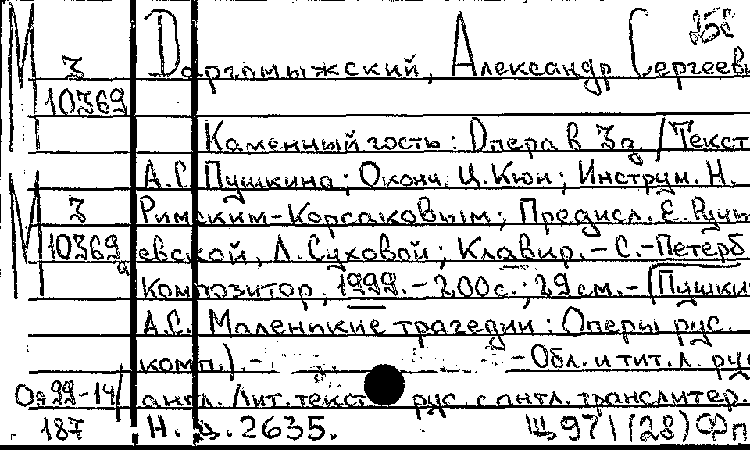 М Даргомыжский, Александр Сергееви
З
10369
Каменный гость: Опера в 3 д / Текст
А.С. Пушкина; Оконч. Ц. Кюи; Инструм. Н.
М З Римским-Корсаковым; Предисл. Е. Ручь
10369а евской, Л. Суховой; Клавир. – С.-Петерб
Композитор, 1999. – 200 с.; 29 см. – (Пушки
А.С. Маленькие трагедии: Оперы рус.
комп.). – – Обл. и тит. л. рус
Оя 99-14/ англ. Лит. текст рус. с англ. транслитер.
187 Н. д. 2635. Щ 971(28) Фп